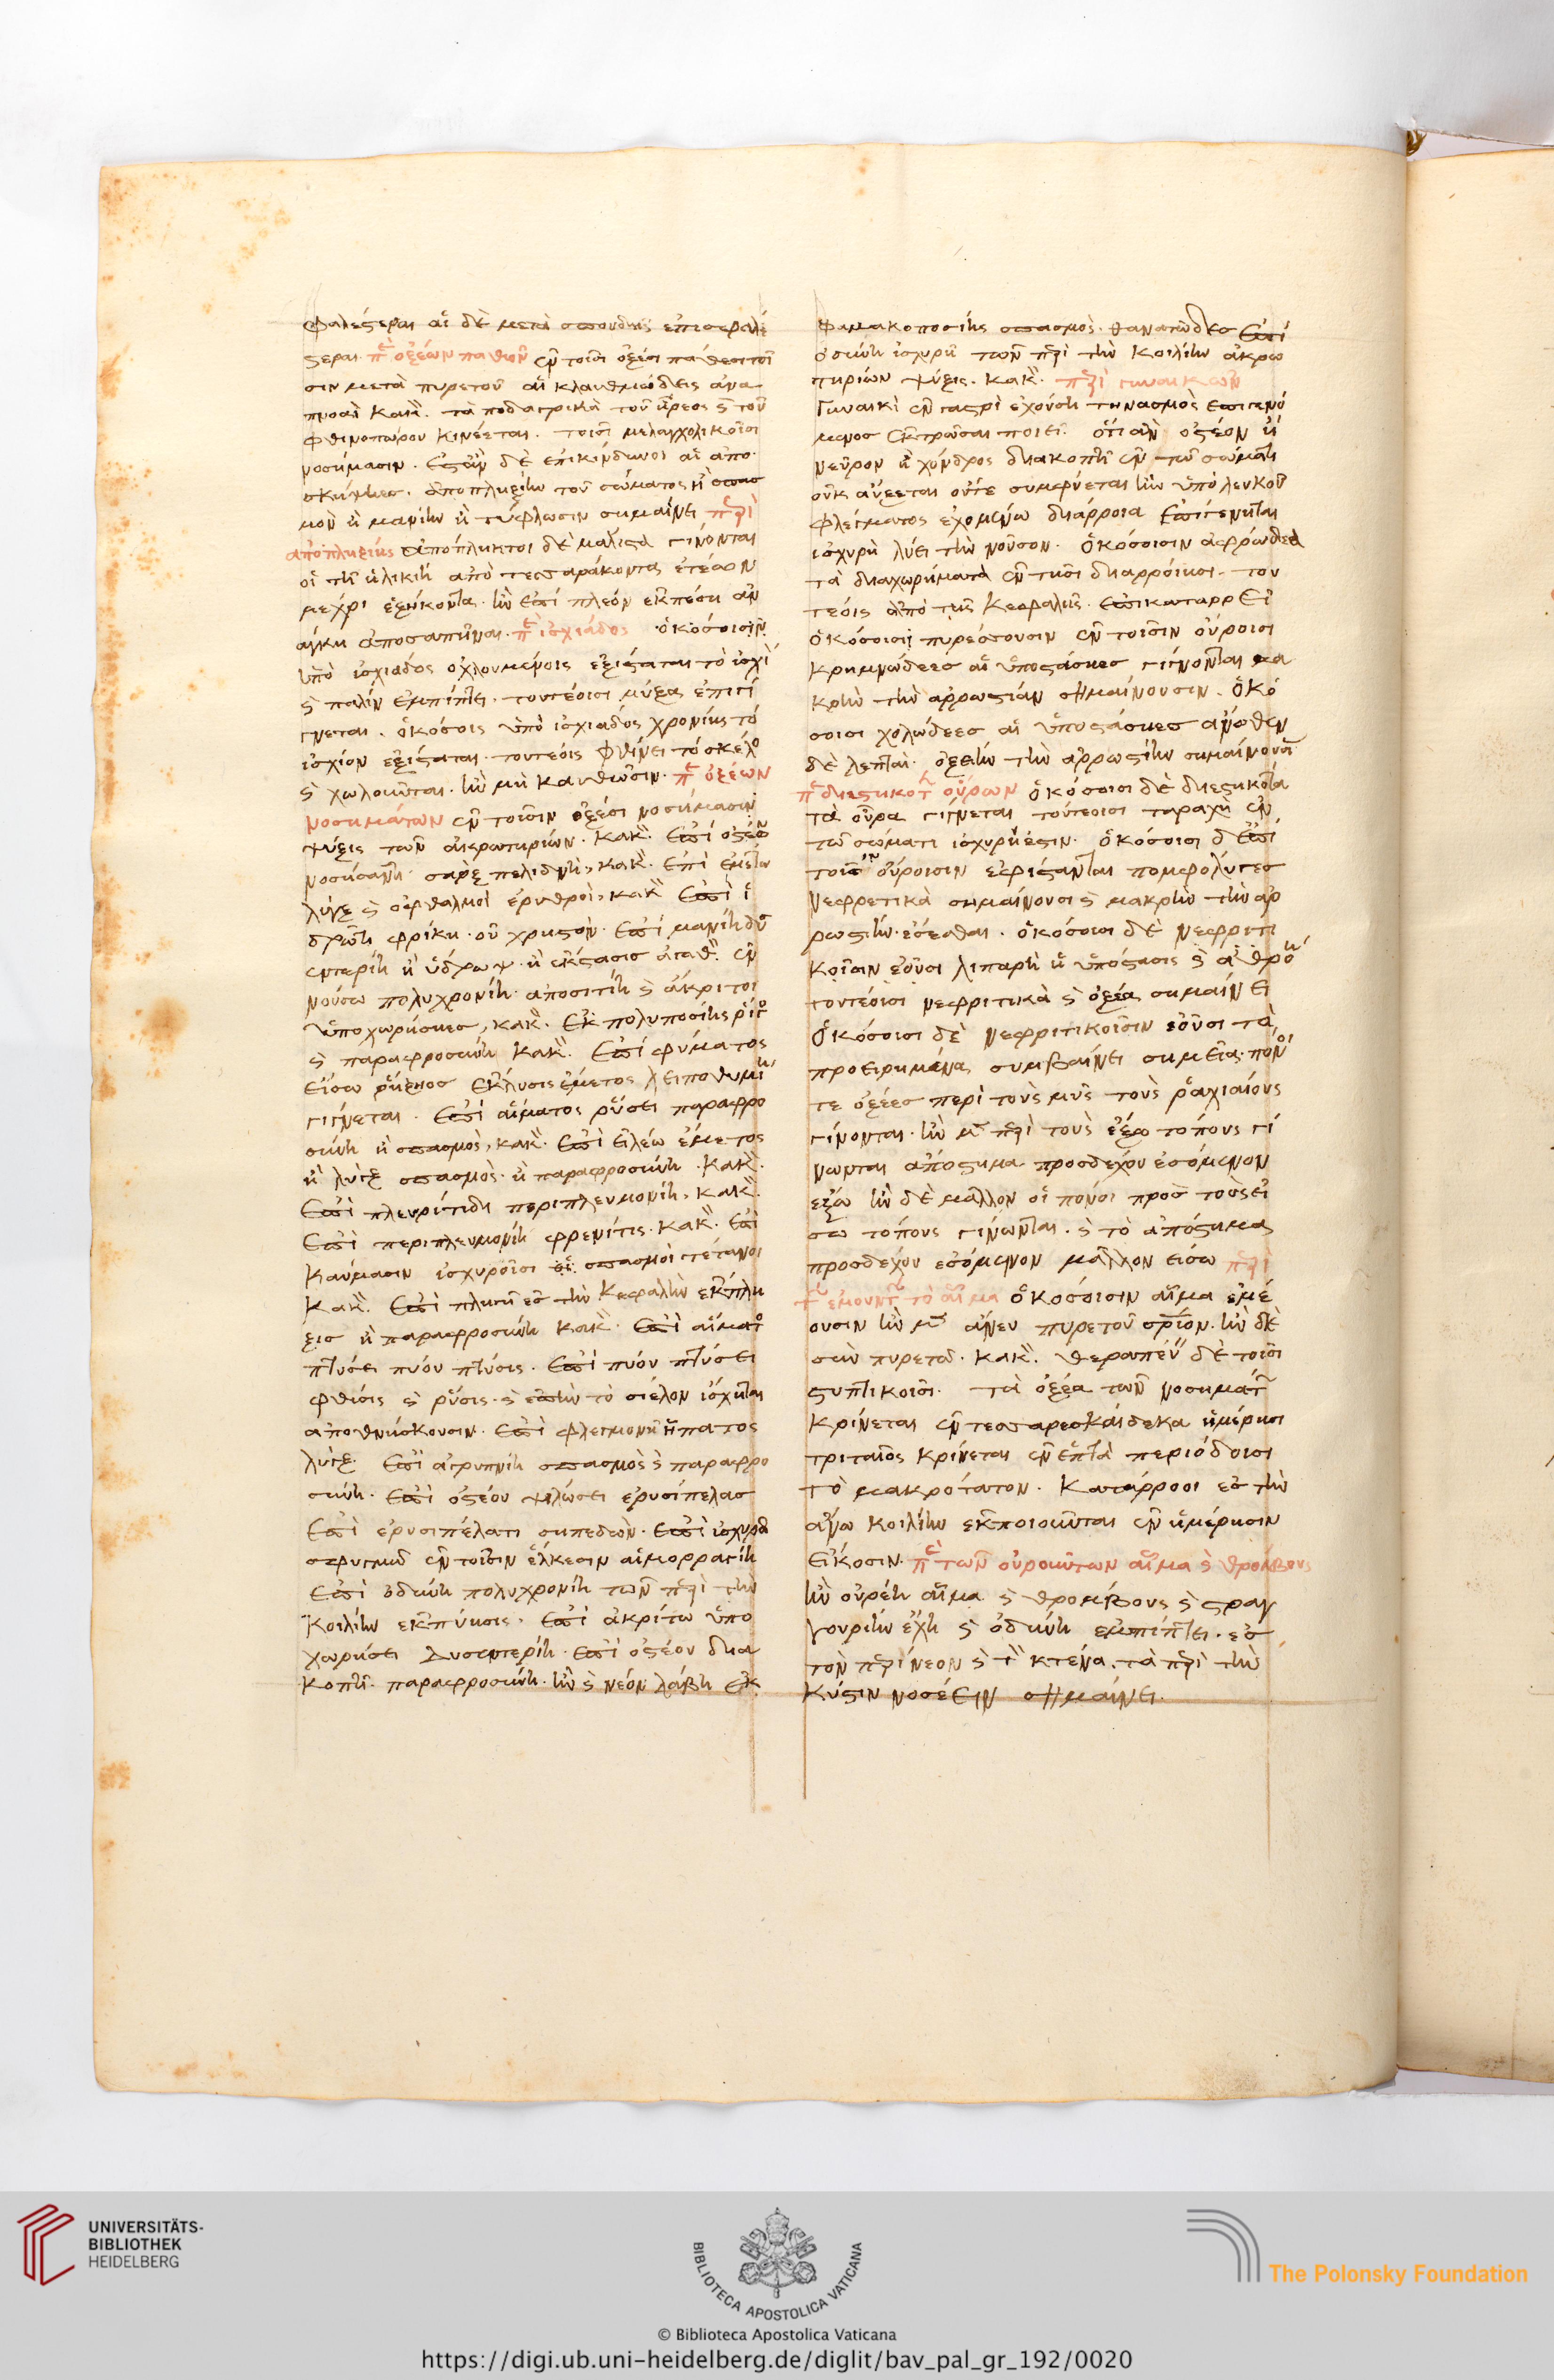 φαλέςεραι αἱ δὲ μετὰ σπουδῆς ἐπισφαλέ
ςεραι. πὲ ὀξέων παθῶν ἐν τοῖσι ὀξέσι πάθεσι τοῖ
σιν μετὰ πυρετοῦ αἱ κλαυθμώδεις ἀνα
πνοαὶ κακὸν. τὰ ποδαγρικὰ τοῦ ἦρεος ϗ τοῦ
φθινοπώρου κινέεται. τοῖσι μελαγχολικοῖσι
νοσήμασιν. ἐς δὲ ἐπικίνδυνοι αἱ ἀπο
σκήψιες. ἀποπληξίην τοῦ σώματος ἢ σπασ
μὸν ἢ μανίην ἢ τύφλωσιν σημαίνει περὶ
ἀποπληξίης ἀπόπληκτοι δὲ μάλιςα γίνονται
οἱ τῆ ἡλικίη ἀπὸ τεσσαράκοντα ἐτέων
μέχρι ἑξήκοντα. ἢν ἐπὶ πλεόν ἐκπέση ἀν
άγκη ἀποσαπῆναι. πὲ ἰσχιάδος ὁκόσοισιν
ὑπὸ ἰσχιάδος ὀχλουμένοις ἐξίςαται τὸ ἰσχί
ϗ παλίν ἐμπίπτει. τουτέοισι μύξα ἐπιγί
γνεται. ὁκόσοις ὑπὸ ἰσχιάδος χρονίης τὸ
ἰσχίον ἐξίςαται. τουτέοις φθίνει τὸ σκέλο
ϗ χωλοῦνται. ἢν μὴ καυθῶσιν. πὲ ὀξέων
νοσημάτων ἐν τοῖσιν ὀξέσι νοσήμασιν
ψύξις τῶν ἀκρωτηρίων. κακὸν. ἐπὶ ὀςέω
νοσήσαντι σὰρξ πελιδνὴ, κακὸν. ἐπὶ ἐμέτω
λύγξ ϗ ὀφθαλμοὶ ἐρυθροὶ, κακὸν ἐπὶ ἱ
δρῶτι φρίκη. οὐ χρηςὸν. ἐπὶ μανίη δυ
σεντερίη ἢ ὕδρωψ. ἢ ἔκςασισ ἀγαθὸν. ἐν
νούσω πολυχρονίη. ἀποσιτίη ϗ ἄκριτοι
ὑποχωρήσιες, κακὸν. ἐκ πολυποσίης ῥίγος
ϗ παραφροσύνη κακὸν. ἐπὶ φύματος
εἴσω ῥήξηος ἔκλυσις ἔμετος λειποθυμίη
γίγνεται. ἐπὶ αἵματος ῥύσει παραφρο
σύνη ἢ σπασμὸς, κακὸν. ἐπὶ εἰλέω ἔμετος
ἢ λύγξ σπασμὸς. ἢ παραφροσύνη. κακὸν.
ἐπὶ πλευρίτιδι περιπλευμονίη, κακὸν.
ἐπὶ περιπλευμονίη φρενίτις. κακὸν. ἐπὶ
καύμασιν ἰσχυροῖσι σπασμοὶ τέτανοι
κακὸν. ἐπὶ πληγῆ ἐσ τὴν κεφαλὴν ἔκπλη
ξισ ἢ παραφροσύνη κακὸν. ἐπὶ αἵματος
πτύσει πύον πτύσις. ἐπὶ πύου πτύσει
φθίσις ϗ ῥύσις. ϗ ἐπὴν τὸ σιέλον ἴσχηται
ἀποθνήσκουσιν. ἐπὶ φλεγμονῆ ἥπατος
λύγξ. ἐπὶ ἀγρυπνίη σπασμὸς ϗ παραφρο
σύνη. ἐπὶ ὀςέου ψιλώσει ἐρυσίπελασ
ἐπὶ ἐρυσιπέλατι σηπεδὼν. ἐπὶ ἰσχυρῶ
σφυγμῶ ἐν τοῖσιν ἕλκεσιν αἱμορραγίη
ἐπὶ ὀδύνη πολυχρονίη τῶν περὶ τὴν
κοιλίην ἐκπύησις. ἐπὶ ἀκρίτω ὑπο
χωρήσει δυσεντερίη. ἐπὶ ὀςέου δια
κοπῆ. παραφροσύνη. ἢν ϗ νεόν λάβη ἐκ
φαμακοποσίης σπασμὸς. θανατῶδεσ ἐπὶ
ὀδύνη ἰσχυρῆ τῶν περὶ τὴν κοιλίην ἀκρω
τηρίων ψύξις. κακὸν. περὶ γυναικῶν
γυναικὶ ἐν γαςρὶ ἐχούση τηνασμὸς ἐπιγενό
μενοσ ἐκτρῶσαι ποιεῖ. ὅτι ἂν ὀςέον ἢ
νεῦρον ἢ χόνδρος διακοπῆ ἐν τῶ σώματι
οὐκ αὔξεται οὔτε συμφύεται ἢν ὑπὸ λευκοῦ
φλέγματος ἐχομένω διάρροια ἐπιγένηται
ἰσχυρὴ λύει τὴν νοῦσον. ὁκόσοισιν ἀφρώδεα
τὰ διαχωρήματα ἐν τῆσι διαρροίησι. του
τέοις ἀπὸ τῆς κεφαλῆς. ἐπικαταρρεῖ
ὁκόσοισι πυρέσσουσιν ἐν τοῖσιν οὔροισι
κρημνώδεεσ αἱ ὑποςάσιες γίγνονται μα
κρὴν τὴν ἀρρωςίαν σημαίνουσιν. ὁκό
σοισι χολώδεες αἱ ὑποςάσιεσ ἄνωθεν
δὲ λεπταὶ. ὀξείην τὴν ἀρρωςίην σημαίνουσι
πὲ διεςηκότων οὔρων ὁκόσοισι δὲ διεςηκότα
τὰ οὖρα γίγνεται τούτεοισι ταραχὴ ἐν
τῶ σώματι ἰσχυρὴ ἐςιν. ὁκόσοισι δ ἐπὶ
τοῖσιν οὔροισιν ἐφίςανται πομφολύγεσ
νεφρετικὰ σημαίνουσι ϗ μακρὴν τὴν ἀρ
ρωςίην. ἔσεσθαι. ὁκόσοισι δὲ νεφριτι
κοῖσιν ἐοῦσι λιπαρὴ ἡ ὑπόςασις ϗ ἀθρόη
τουτέοισι νεφριτικὰ ϗ ὀξέα σημαίνει
ὁκόσοισι δὲ νεφριτικοῖσιν ἐοῦσι τὰ
προειρημένα συμβαίνει σημεῖα. πόνοι
τε ὀξέεσ περὶ τοὺς μῦς τοὺς ῥαχιαίους
γίνονται. ἢν μὲν περὶ τοὺς ἔξω τόπους γί
νωνται ἀπόςημα προσδέχου ἐσόμενον
ἔξω ἢν δὲ μᾶλλον οἱ πόνοι προσ τοὺς εἴ
σω τόπους γίνωνται. ϗ τὸ ἀπόςημα
προσδέχου ἐσόμενον μᾶλλον εἴσω περὶ
τῶν ἐμούντων τὸ αἷμα ὁκόσοισιν αἷμα ἐμέ
ουσιν ἢν μὲν ἄνευ πυρετοῦ σωτήριον. ἢν δὲ
σὺν πυρετῶ. κακὸν. θεραπεύειν δὲ τοῖσι
ςυπτικοῖσι. τὰ ὀξέα τῶν νοσημάτων
κρίνεται ἐν τεσσαρεσκαίδεκα ἡμέρησι
τριταῖος κρίνεται ἐν ἑπτὰ περιόδοισι
τὸ μακρότατον. κατάρροοι ἐσ τὴν
ἄνω κοιλίην ἐκποιοῦνται ἐν ἡμέρησιν
εἴκοσιν. πὲ τῶν οὐρούντων αἷμα ϗ θρόμβους
ἢν οὐρέη αἷμα ϗ θρόμβους ϗ ςραγ
γουρίην ἔχη ϗ ὀδύνη ἐμπίπτει. ἐσ
τὸν περίνεον ϗ τὸν κτένα. τὰ περὶ τὴν
κύςιν νοσέειν σημαίνει.
UNIVERSITÄTS-
BIBLIOTHEK
HEIDELBERG
BIBLIOTECA APOSTOLICA VATICANA
The Polonsky Foundation
© Biblioteca Apostolica Vaticana
https://digi.ub.uni-heidelberg.de/diglit/bav_pal_gr_192/0020